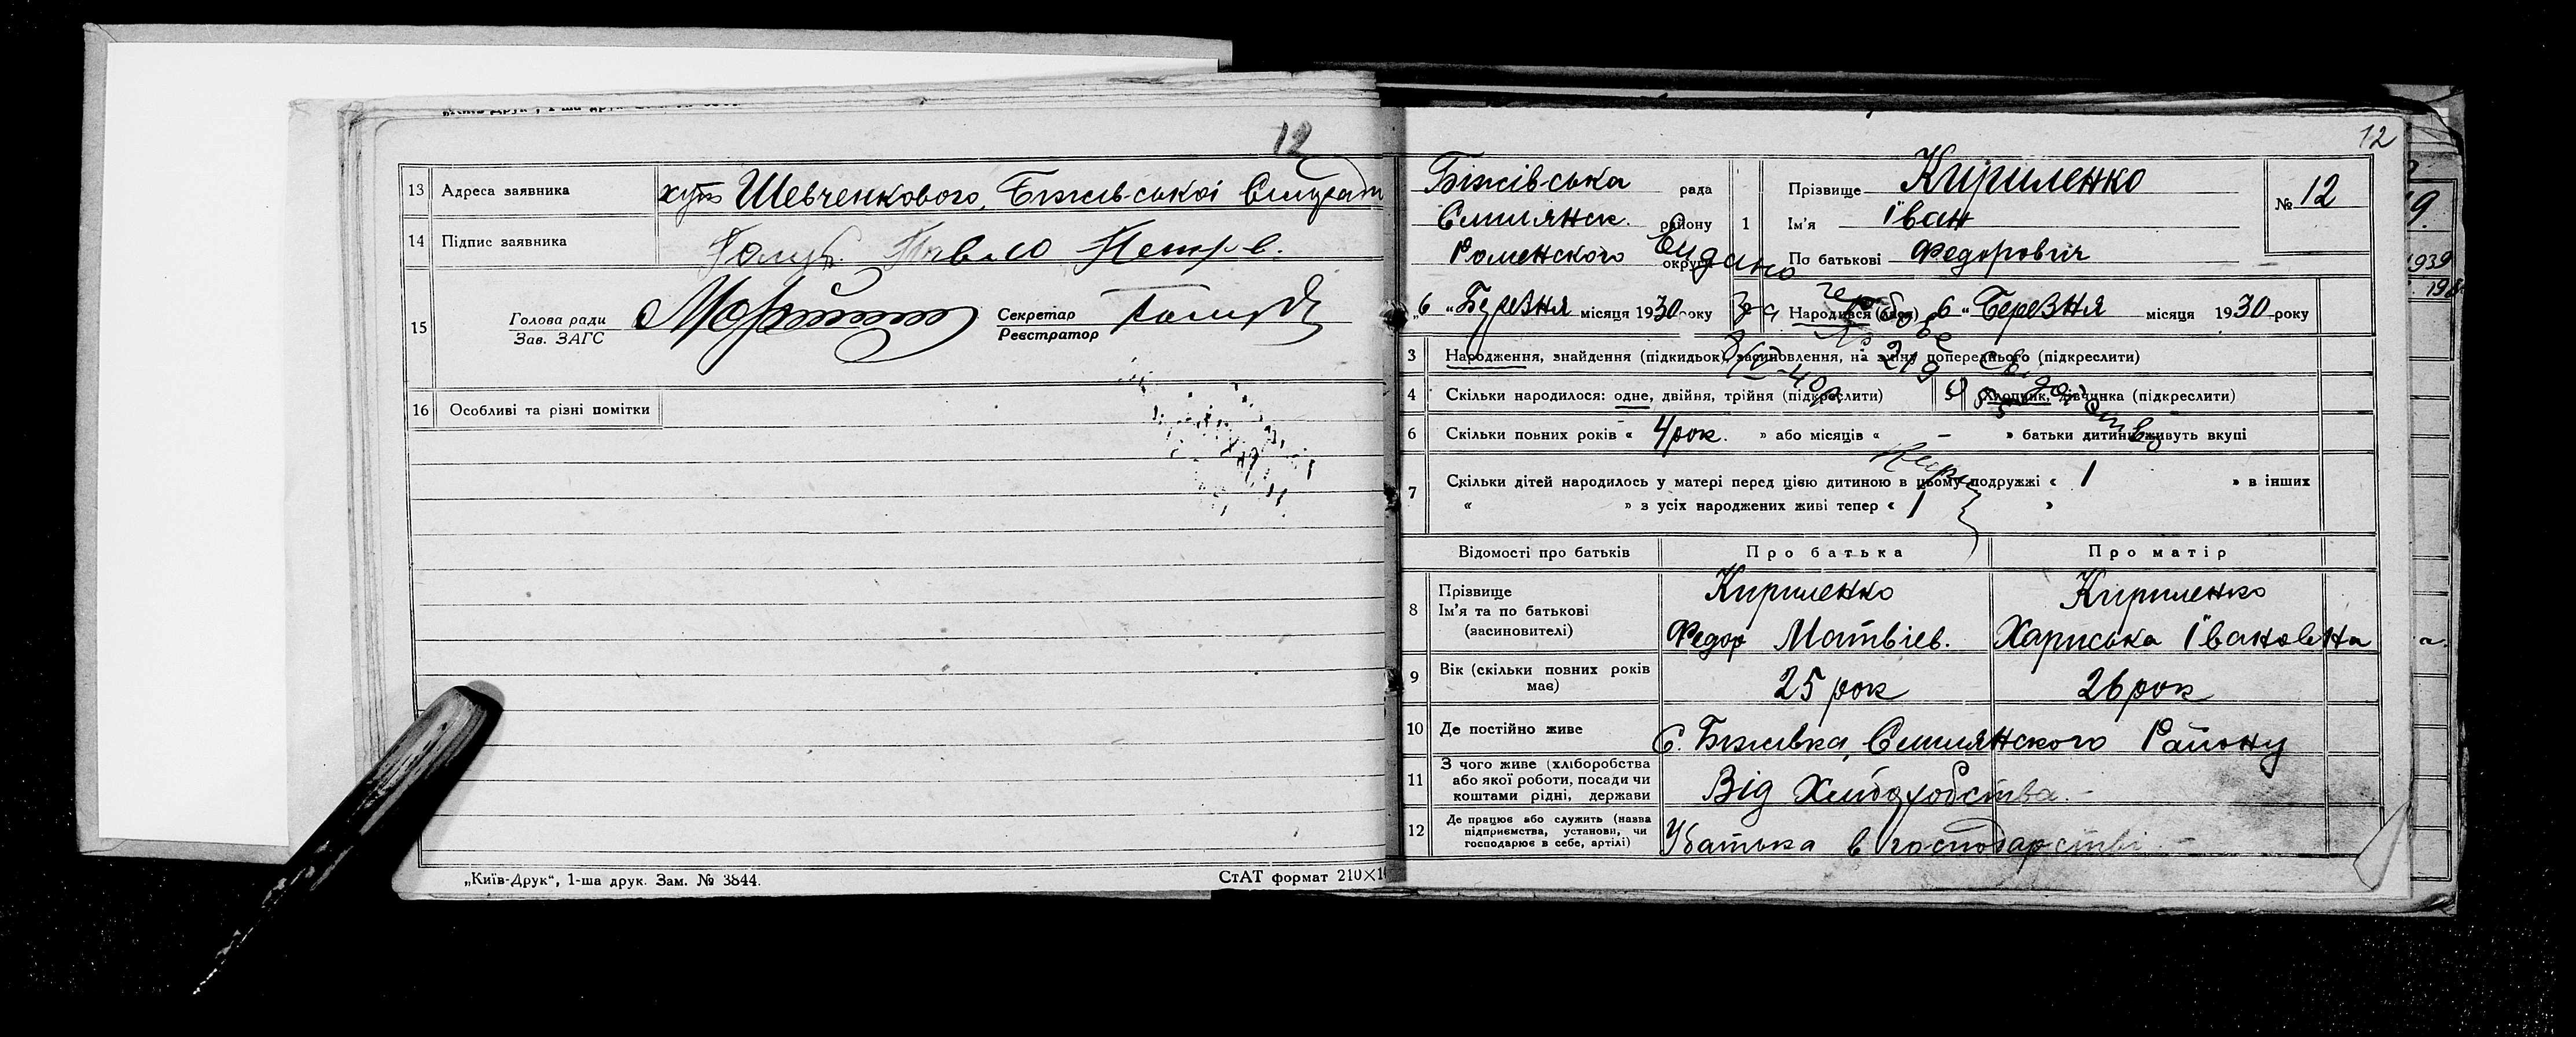 12
13 Адреса заявника хут Шевченкового, Біжівської Сільради
14 Підпис заявника Голуб Павло Петр в.
15 Голова ради
Зав. ЗАГС
Секретар
Реєстратор
16 Особливі та різні помітки
„Київ-Друк“, 1-ша друк. Зам. № 3844.
СтАТ формат 210×1
12
Біжівська рада
Смілянськ. району
Роменского округи
„6 „Березня місяця 1930 року
1 Прізвище Кириленко
Ім'я Іван
По батькові Федорович
№ 12
Народився (лася) 6 „Березня місяця 1930 року
Видано
3 Народження, знайдення (підкидьок), засиновлення, на зміну попереднього (підкреслити)
4 Скільки народилося: одне, двійня, трійня (підкреслити)
5 Хлопчик, дівчинка (підкреслити)
6 Скільки повних років « 4 рок. » або місяців « – » батьки дитини живуть вкупі
7 Скільки дітей народилось у матері перед цією дитиною в цьому подружжі « 1 » в інших
« » з усіх народжених живі тепер « 1 »
Відомості про батьків Про батька Про матір
8 Прізвище
Ім'я та по батькові
(засиновителі)
Кириленко
Федор Матвіев.
Кириленко
Хариська Івановна
9 Вік (скільки повних років
має)
25 рок
26 рок
10 Де постійно живе С. Біжівка, Смілянского Району
11 З чого живе (хліборобства
або якої роботи, посади чи
коштами рідні, держави
Від Хліборобства.
12 Де працює або служить (назва
підприємства, установи, чи
господарює в себе, артілі)
У батька в господарстві
9.
1939